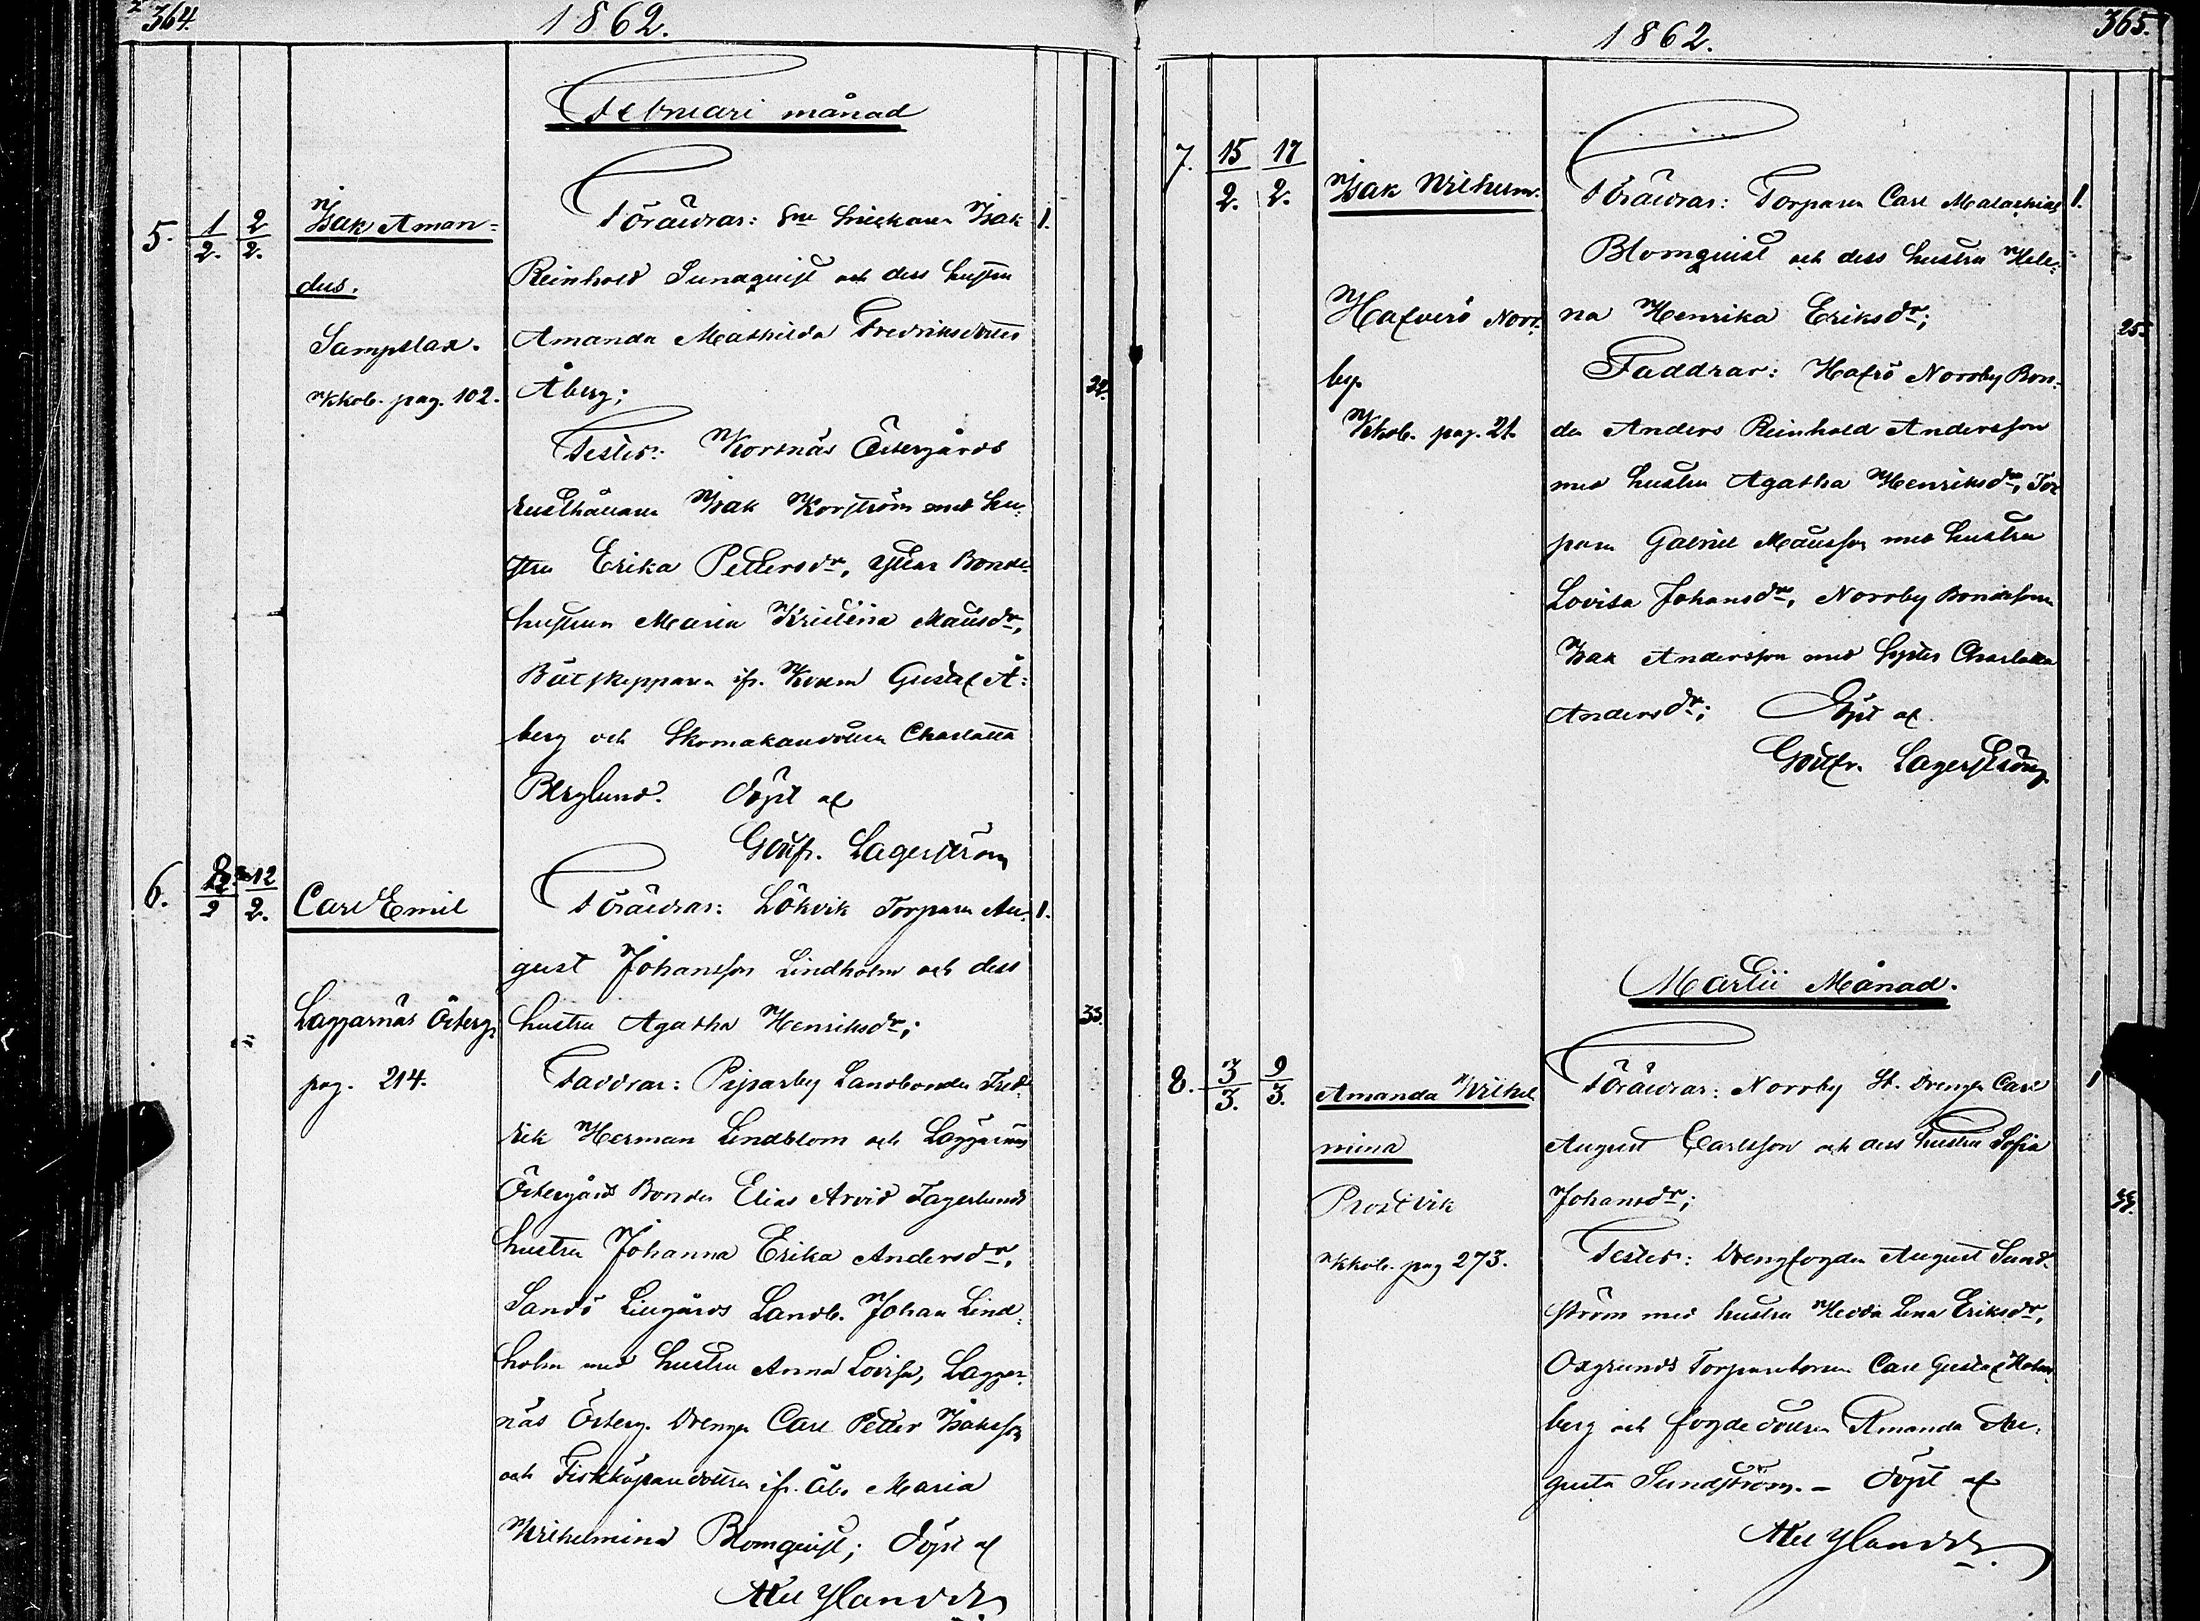 364.
1862.
Februari månad
5. 1/2. 2/2.
Isak Aman=
dus.
Sampelax.
Kkob. pag. 102.
Föräldrar: Isak 1.
Reinhold Sundqvist och dess hustru
Amanda Mathilda Fredriksdotter
Åberg; 32.
Testes: Korsnäs Östergårds
Rusthållaren Isak Korström med hu-
stru Erika Pettersd:r, Bonde-
hustrun Maria Kristina Matsd:r,
Båtskepparen ifr. Gustaf Å=
berg och Skomakaredottren Charlotta
Berglund. Döpt af
Gottfr. Lagerström
6. 2 12/2.
Carl Emil
Laggarnäs Österg.
pag. 214.
Föräldrar: Lökvik Torparen Au- 1.
gust Johansson Lindholm och dess
hustru Agatha Henriksd:r; 33.
Faddrar: Piparby Landbonden Fred-
rik Herman Lindblom och Laggarnäs
Östergårds Bonden Elias Arvid Fagerlunds
hustru Johanna Erika Andersd:r,
Sandö Lillgårds Landb. Johan Lind-
holm med hustru Anna Lovisa, Laggar-
näs Österg. Drengen Carl Petter Isaksson
och Fiskköparedottren ifr. Åbo Maria
Wilhelmina Blomqvist; Döpt af
365.
1862.
7. 15/2. 17/2.
Isak Wilhelm.
Hafverö Norr-
by.
Kkob. pag. 21.
Föräldrar: Torparen Carl Malachias 1.
Blomquist och dess hustru Hele-
na Henrika Eriksd:r; 25.
Faddrar: Hafrö Norrby Bon-
den Anders Reinhold Andersson
med hustru Agatha Henriksd:r, Tor
paren Gabriel Matsson med hustru
Lovisa Johansd:r, Norrby Bondesonen
Isak Andersson med Syster Charlotta
Andersd:r; Döpt af
Gottfr. Lagerström.
Martii Månad.
8. 3/3. 9/3.
Amanda Wilhel
mina
Prostvik
Kkob. pag 273.
Föräldrar: Norrby St. Drengen Carl 1
August Carlsson och dess hustru Sofia
Johansd:r; 33.
Testes: Drengfogden August Sund-
ström med hustru Hedda Lena Eriksd:r,
Oxgrunds Torparesonen Carl Gustaf Holm-
berg och fogdedottren Amanda Au-
gusta Sundström. – Döpt af